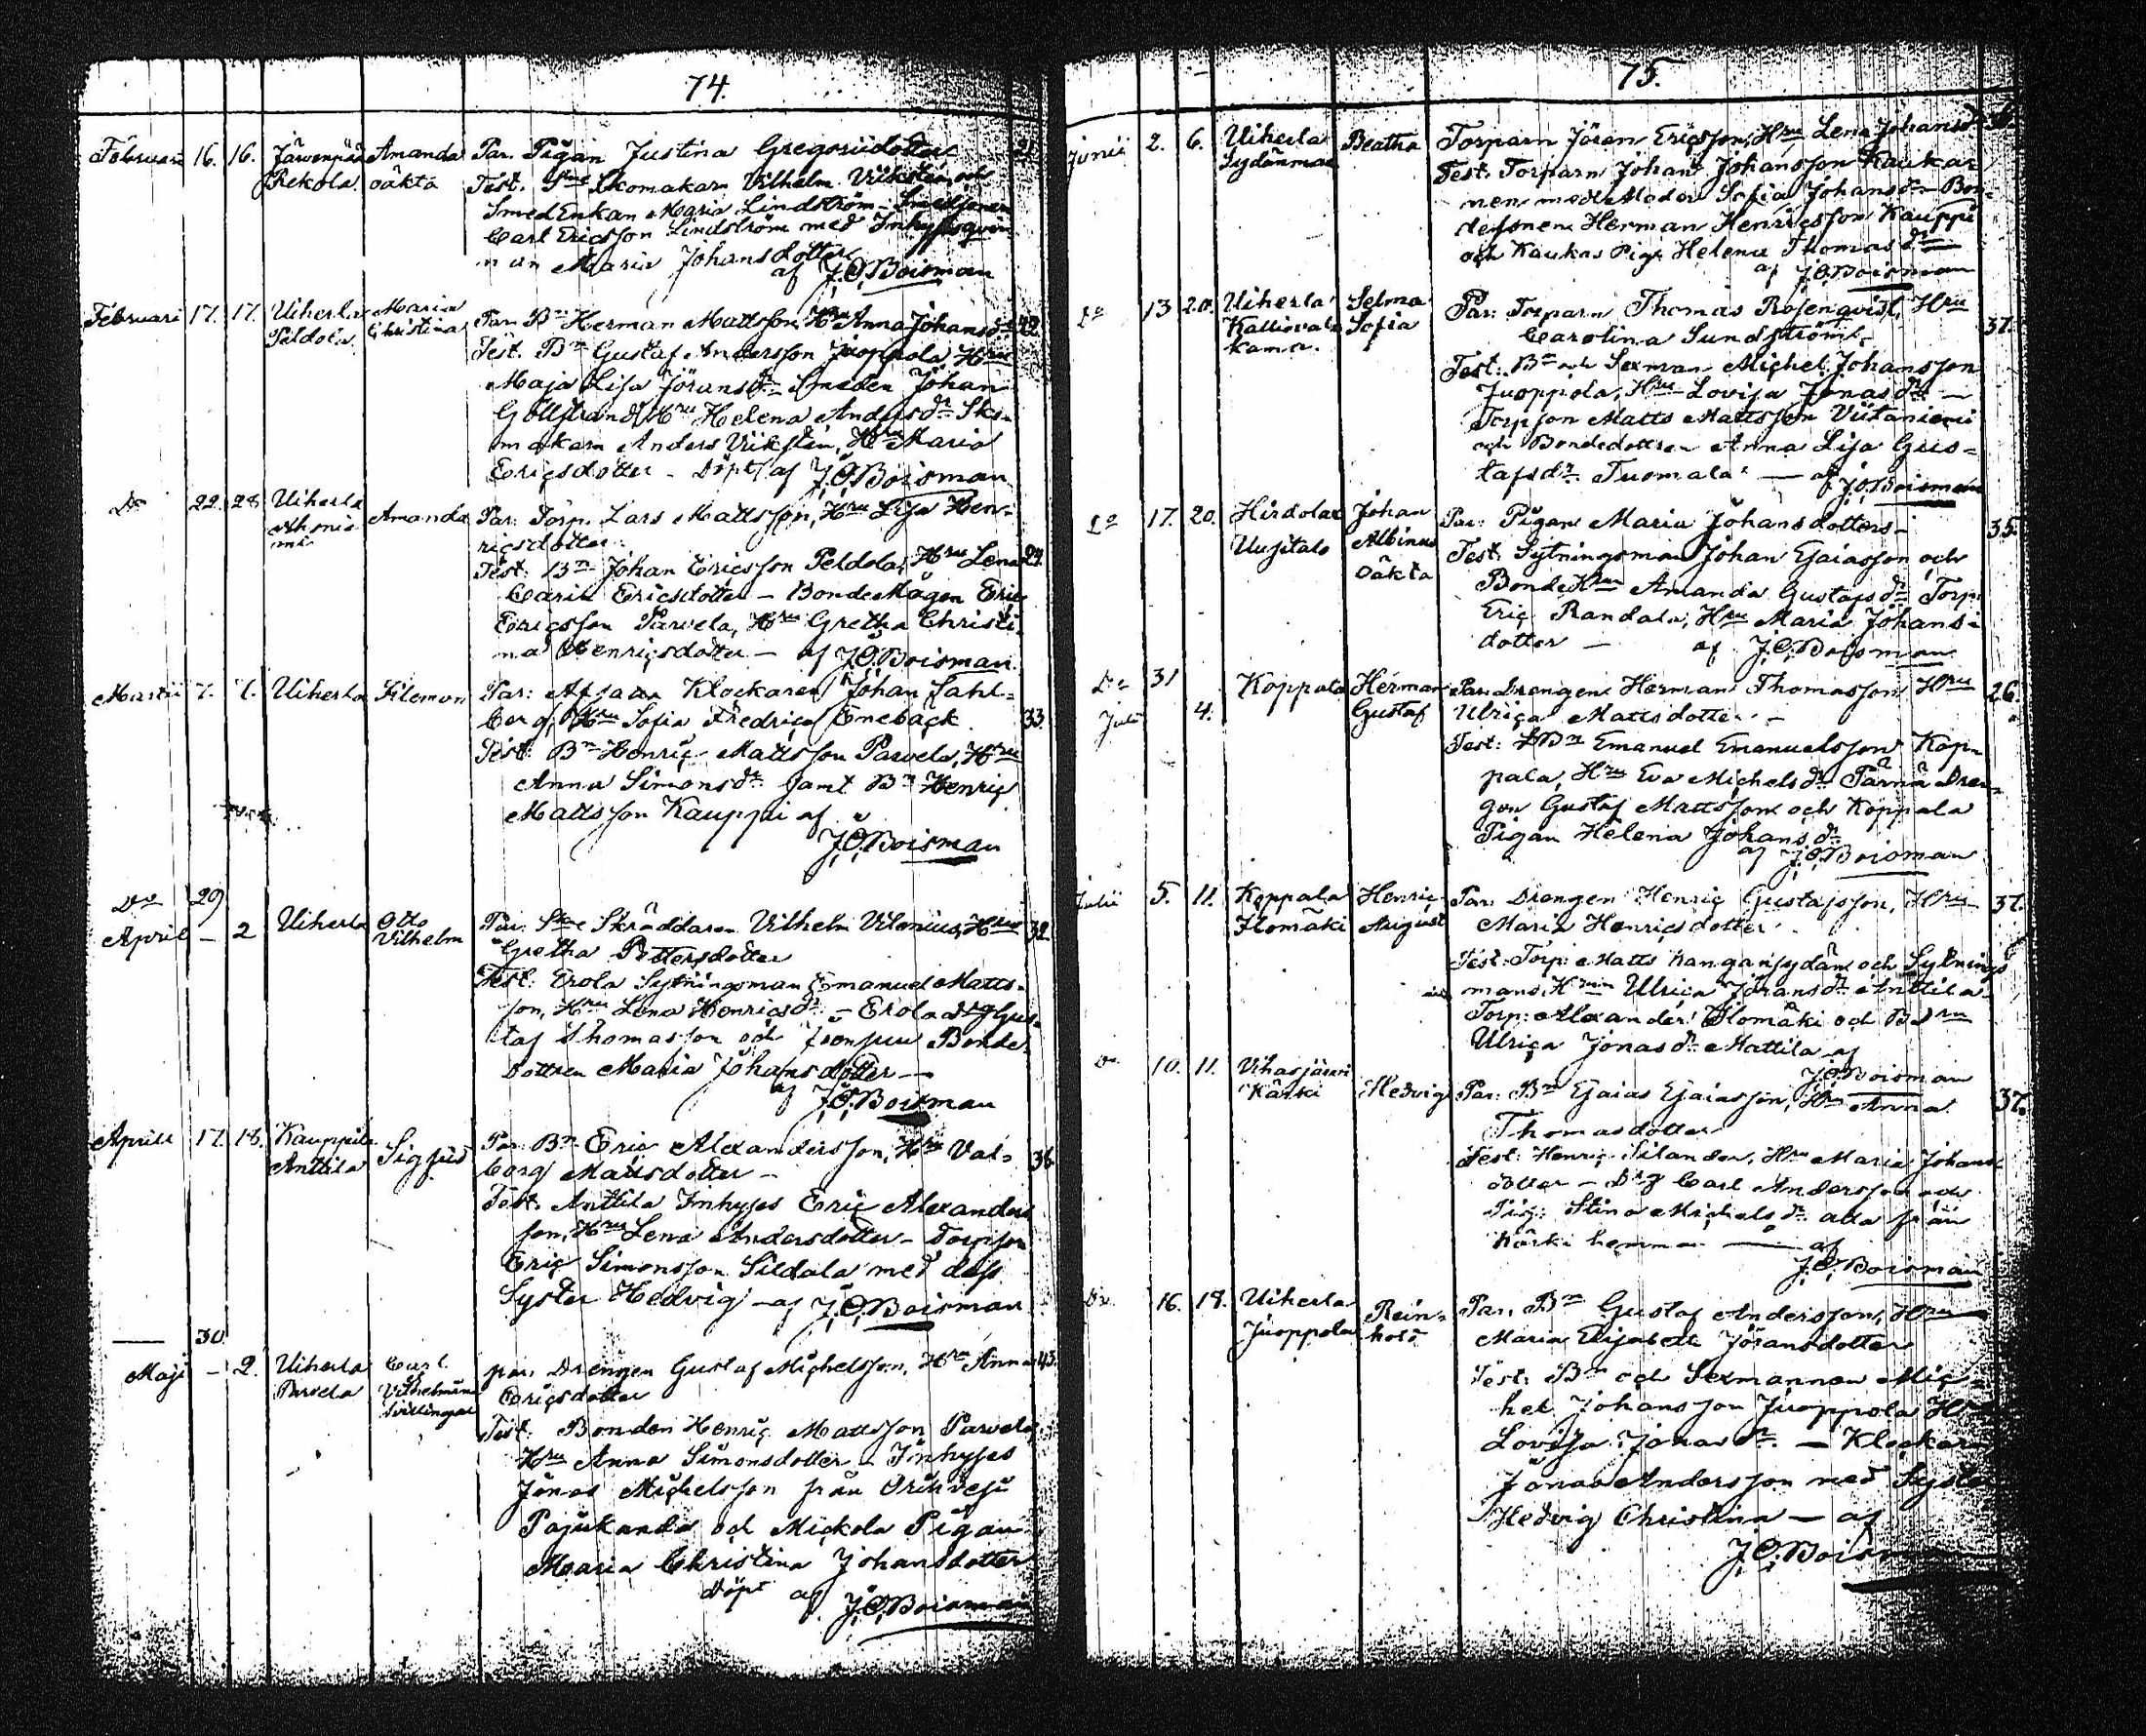 74.
Februari 16. 16. Järvenpää Amanda Par. Pigan Justina Gregoriidotter
Rekola oäkta Test. Skomakarn Vilhelm Vikstén och
Smed Enkan Maria Lindström - Smedsonen
Carl Ericsson Lindström med Inhyses qvin
nan Maria Johansdotter
af J.O. Boisman
Februari 17. 17. Uiherla Maria Par. Bn Herman Mattsson, Hru Anna Johansdr 22.
Peldola Christina
Test. Bn Gustaf Andersson Juoppola Hru
Maja Lisa Jöransdr Smeden Johan
Göllstrand, Hru Helena Andersdr Sko-
makarn Anders Vikstén, Hru Maria
Ericsdotter - Döpt af J.O. Boisman
Do 22. 28 Uiherla Amanda Par: Torp. Lars Mattsson, Hru Lisa Hen-
Ahonie
mi
ricsdotter
Test: Bn Johan Ericsson Peldola, Hru Lena 24.
Carin Ericsdotter - Bonde Mågen Eric
Ericsson Parvela, Hru Gretha Christi-
na Henricsdotter - af J.O. Boisman
Martii 7. 7. Uiherla Filemon Par: Klockaren Johan Sahl-
berg, Hru Sofia Fredrica Eneback 33.
Test: Bn Henric Mattsson Parvela, Hru
Anna Simonsdr samt Bn Henric
Mattsson Kauppi af
J.O. Boisman
Do 29
April - 2 Uiherla Otto Par. Skne Skräddaren Vilhelm Vilenius, Hru 32
Vilhelm Gretha Pettersdotter
Test: Erola Sytningsman Emanuel Matts-
son, Hru Lena Henricsdr - Erola drg Gus-
taf Thomasson och Bonde-
dottren Maria Johansdotter -
af J.O. Boisman
April 17. 18. Kauppila Sigfrid Par Bn Eric Alexandersson, Hru Val- 36
Anttila borg Mattsdotter -
Test. Anttila Inhyses Eric Alexanders
son, Hru Lena Andersdotter - Torpson
Eric Simonsson Sildala med dess
Syster Hedvig - af J.O. Boisman
30
Maji - 2. Uiherla Carl par. Drengen Gustaf Michelsson, Hru Anna 43.
Parvela Vilhelmina Ericsdotter
tvillingar
Test. Bonden Henric Mattsson Parvela,
Hru Anna Simonsdotter - Inhyses
Jonas Michelsson från Orihvesi
Pajukanda och Mickola Pigan
Maria Christina Johansdotter
döpt af J.O. Boisman
75.
Junii 2. 6. Uiherla Beatha Torparn Jöran Ericsson, Hru Lena Johansdr
Sydänmaa Test: Torparn Johan Johansson Kaukar
nen med Moder Sofia Johansdr - Bon-
desonen Herman Henricsson Kauppi
och Kaukas Piga Helena Thomasdr
af J.O. Boisman
Do 13 20. Uiherla Selma Par: Torparn Thomas Rosenqvist, Hru 37.
Kalliovala Sofia Carolina Sundström.
kama.
Test: Bn och Sexman Michel Johansson
Juoppola, Hru Lovisa Jonasdr -
Torpson Matts Mattsson Viitaniemi
och Bondedottren Anna Lisa Gus-
tafsdr Tuomala - af J.O. Boisman
Do 17. 20. Hirdola Johan Par: Pigan Maria Johansdotters - 35.
Uusitalo Albinus Test: Sytningsman Johan Esaiasson och
oäkta Bonde Hru Amanda Gustafsdr Torp:
Eric Randala, Hru Maria Johans-
dotter - af J.O. Boisman
Do 31
Koppala Herman Par. Drengen Herman Thomasson Hru 26.
Juli 4. Gustaf Ulrica Mattsdotter -
Test: Bn Emanuel Emanuelsson Kop-
pala, Hru Eva Michelsdr Pärnä Dren-
gen Gustaf Mattsson och Koppala
Pigan Helena Johansdr
af J.O. Boisman
Julii 5. 11. Koppala Henric Par. Drengen Henric Gustafsson, Hru 37.
Ilomäki August Maria Henricsdotter.
Test. Torp: Matts Kangansydän och Sytnings
mans Hru Ulrica Johansdr Anttila
Torp: Alexander Ilomäki och Bdru
Ulrica Jonasdr Mattila af
J.O. Boisman
Do 10. 11. Vihasjärvi Hedvig Par: Bn Esaias Esaiasson, Hru Anna 37.
Kärki Thomasdotter
Test: Henric Silander, Hru Maria Johans
dotter - Drg Carl Andersson och
Pig: Stina Michelsdr alla från
Kärki hemman - af
J.O. Boisman
Do 16. 18. Uiherla Rein- Par. Bn Gustaf Andersson, Hru
Juoppola hold Maria Elisabeth Jöransdotter
Test: Bn och Sexmannen Mic-
hel Johansson Juoppola Hru
Lovisa Jonasdr - Klockarn
Jonas Andersson med Syster
Hedvig Christina - af
J.O. Boisman